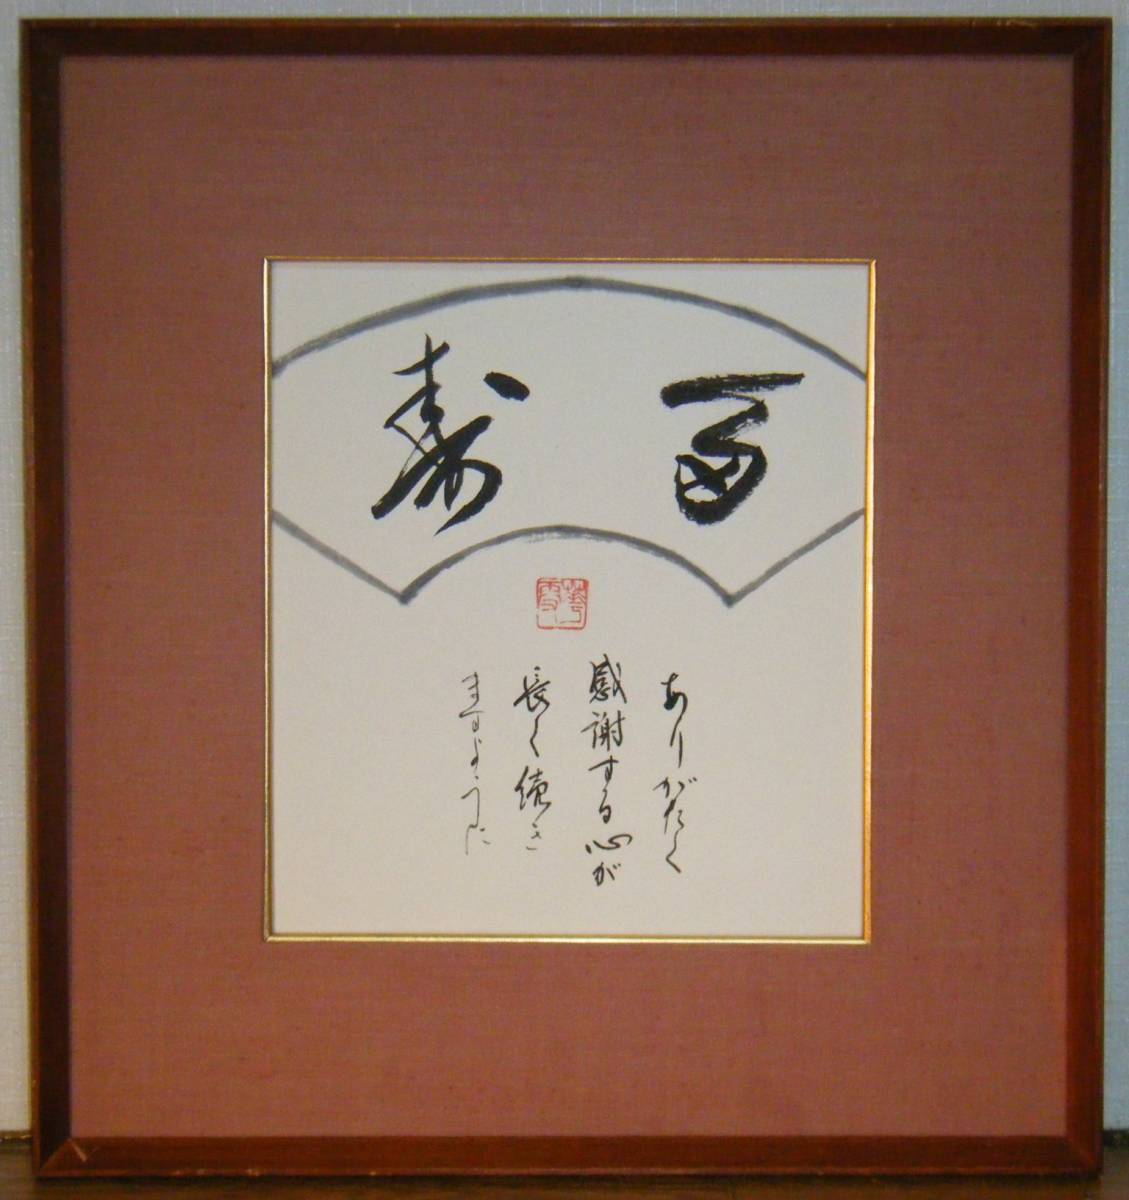 百寿
ありがたく
感謝する心が
長く続き
ますように